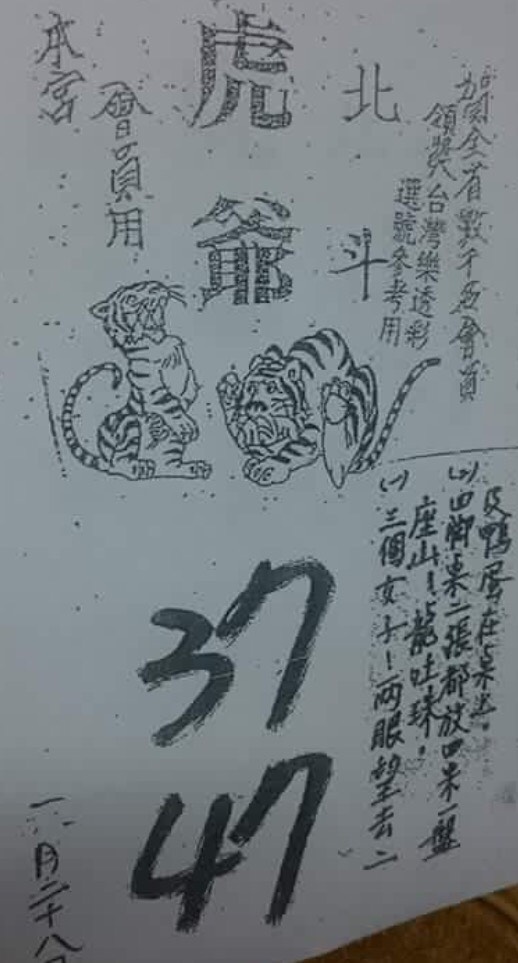 賀全省數千名會員
領獎台灣樂透彩
選號參考用
北斗
虎爺
會員用
本宮
(一)三個女士!兩眼望去二
座山!龍吐珠。
(二)四脚桌二張都放四菜一盤
及鴨蛋在桌
37
47
月二十八